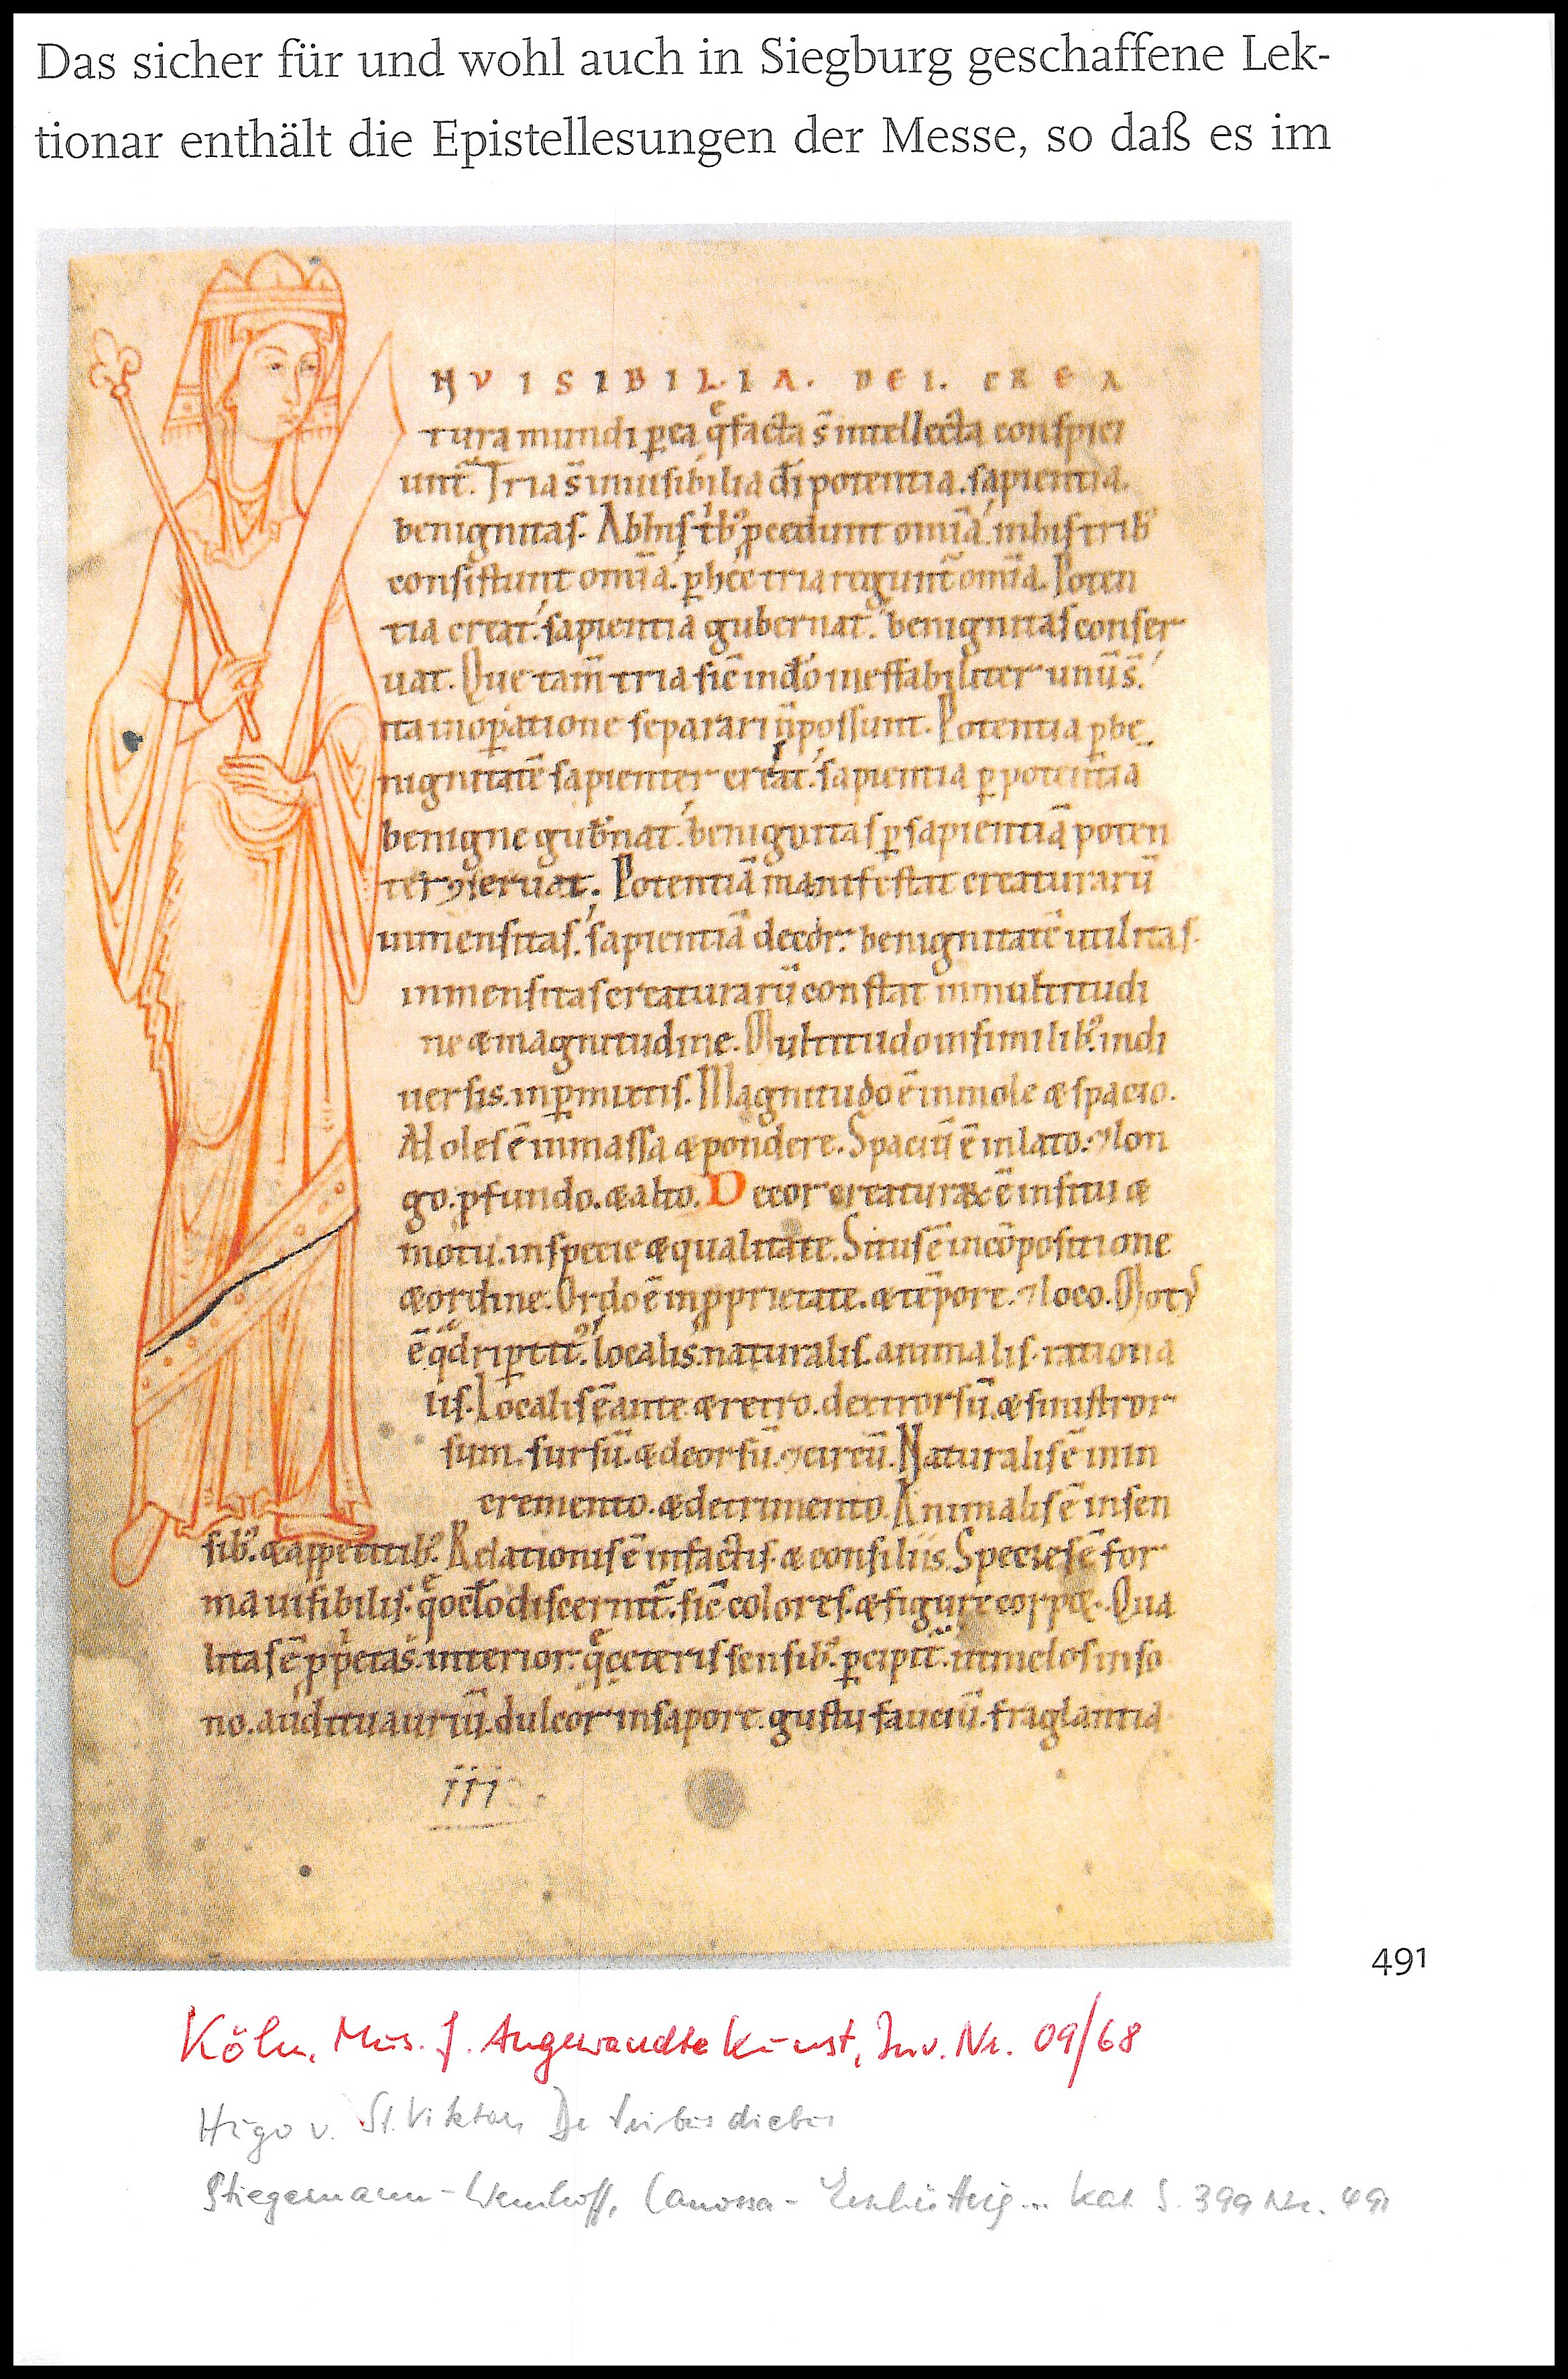 Das sicher für und wohl auch in Siegburg geschaffene Lek-
tionar enthält die Epistellesungen der Messe, so daß es im
NVISIBILIA. DEI. CREA
tura mundi ꝑea q̄ facta s̄ intellecta conspici
unt̄. Tria s̄ inuisibilia dī potentia. sapientia.
benignitas. Abhis trib᷒ ꝓcedunt om̄ia. inhis trib᷒
consistunt om̄ia. ꝑhec tria regunt̄ om̄ia. Poten
tia creat. sapientia gubernat. benignitas conser
uat. Que tam̄ tria sic̄ in do ineffabiliter unū s̄.
ita inoꝑatione separari n̄ possunt. Potentia ꝑbe
nignitatē sapienter creat. sapientia ꝑ potentia
benigne gub̄nat. benignitas ꝑ sapientiā poten
ter ꝯseruat. Potentiā manifestat creaturarū
inmensitas. sapientiā decor. benignitatē utilitas.
inmensitas creaturarū constat inmultitudi
ne æ magnitudine. Multitudo insimilib᷒. indi
uersis. inꝑmixtis. Magnitudo ē inmole æ spacio.
Moles ē inmassa æ pondere. Spaciū ē inlato. ⁊ lon
go. ꝓfundo. æ alto. Decor creaturaꝝ ē insitu æ
motu. inspecie æ qualitate. Situs ē incōpositione
æ ordine. Ordo ē inꝓprietate. æ tēpore. ⁊ loco. Mot᷒
ē qͣdriꝑtit᷒. localis. naturalis. animalis. rationa
lis. Localis ē ante æ retro. dextrorsū. æ sinistror
sum. sursū. æ deorsū. ⁊ circū. Naturalis ē inin
cremento. æ detrimento. Animalis ē insen
sib᷒. æ appetitib᷒. Rationis ē infactis. æ consiliis. Species ē for
ma uisibilis. q̄ oclō discernit̄. sic̄ colores. æ figure corpoꝝ. Qua
litas ē ꝓp̄etas interior. q̄ ceteris sensib᷒. ꝑcipit̄. ut melos inso
no. auditu auriū. dulcor insapore. gustu fauciū. fraglantia
iii
491
Köln, Mus. f. Angewandte Kunst, Inv. Nr. 09/68
Hugo v. St. Viktor, De tribus diebus
Stiegemann-Wemhoff, Canossa - Erschütterung... Kat S. 399 Nr. 491